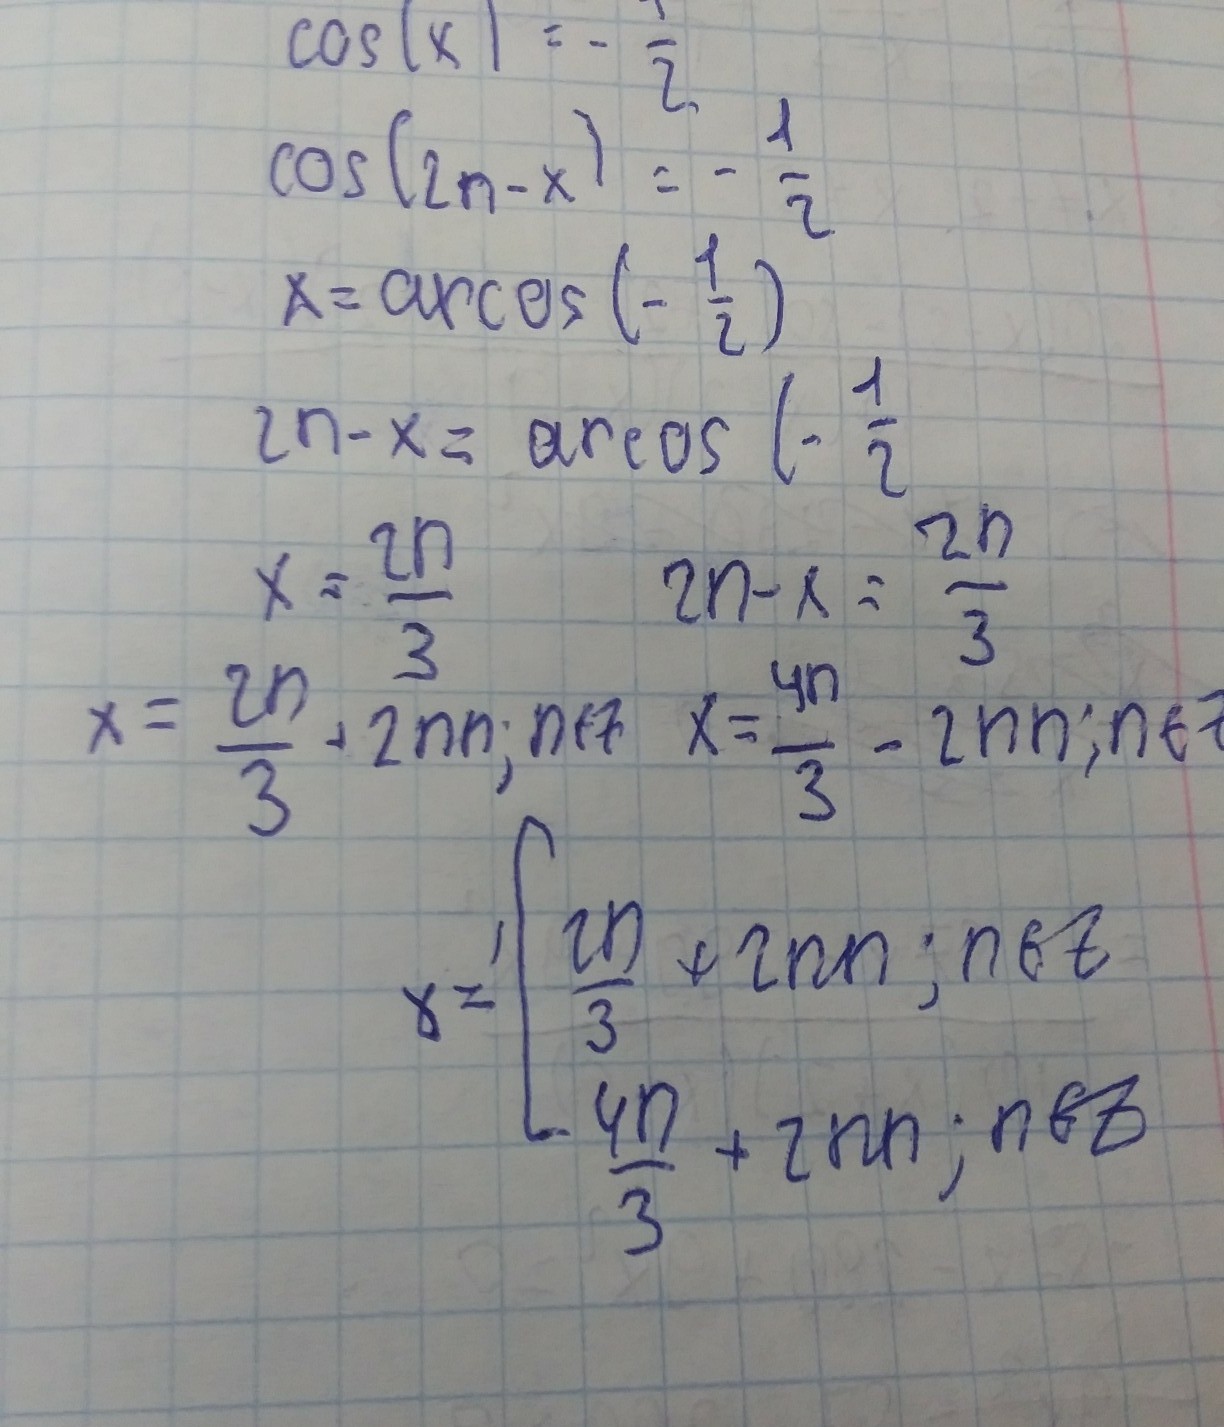 cos(x) = - 1/2
cos(2π-x) = - 1/2
x = arccos(- 1/2)
2π-x = arccos (- 1/2
x = 2π/3 2π-x = 2π/3
x = 2π/3 + 2πn; n∈Z x = 4π/3 - 2πn; n∈Z
x = [ 2π/3 + 2πn; n∈Z
4π/3 + 2πn; n∈Z